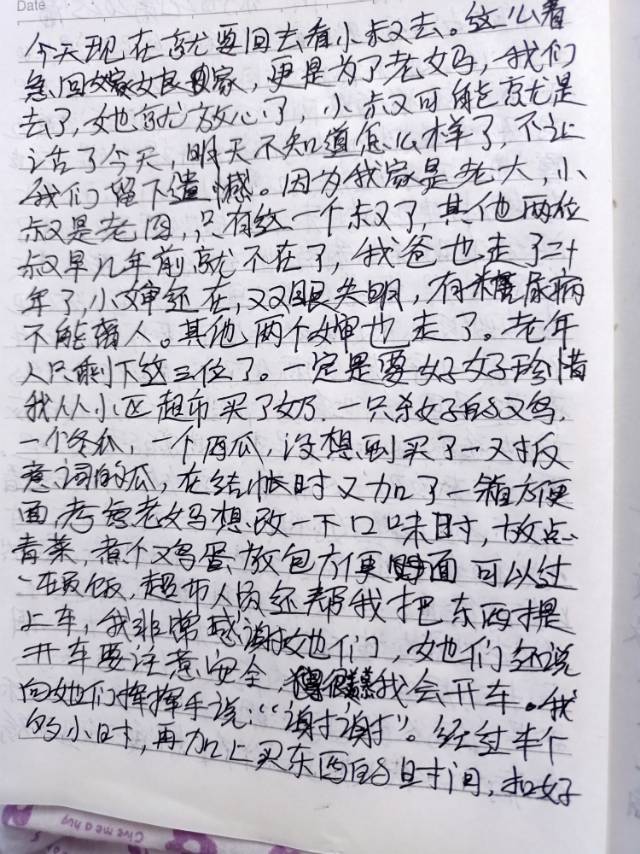 Date
今天现在就要回去看小叔叔去。这么着
急回娘家,更是为了老妈,我们
去了,她就放心了,小叔叔可能就是
活了今天,明天不知道怎么样了,不让
我们留下遗憾。因为我家是老大,小
叔是老四,只有这一个叔了,其他两位
叔早几年前就不在了,我爸也走了二十
年了,小婶还在,双眼失明,有糖尿病
不能离人。其他两个婶也走了。老年
人只剩下这三位了。一定是要好好珍惜
我从小区超市买了奶,一只杀好的鸡,
一个冬瓜,一个西瓜,没想到买了一对反
意词的瓜,在结帐时又加了一箱方便
面,考虑老妈想改一下口味时,放点
青菜,煮个鸡蛋放包方便面可以过
一顿饭,超市人员还帮我把东西提
上车,我非常感谢她们,她们还说
开车要注意安全,很羡慕我会开车。我
向她们挥挥手说:“谢谢”。经过半个
的小时,再加上买东西的时间,扣好
Give me a hug